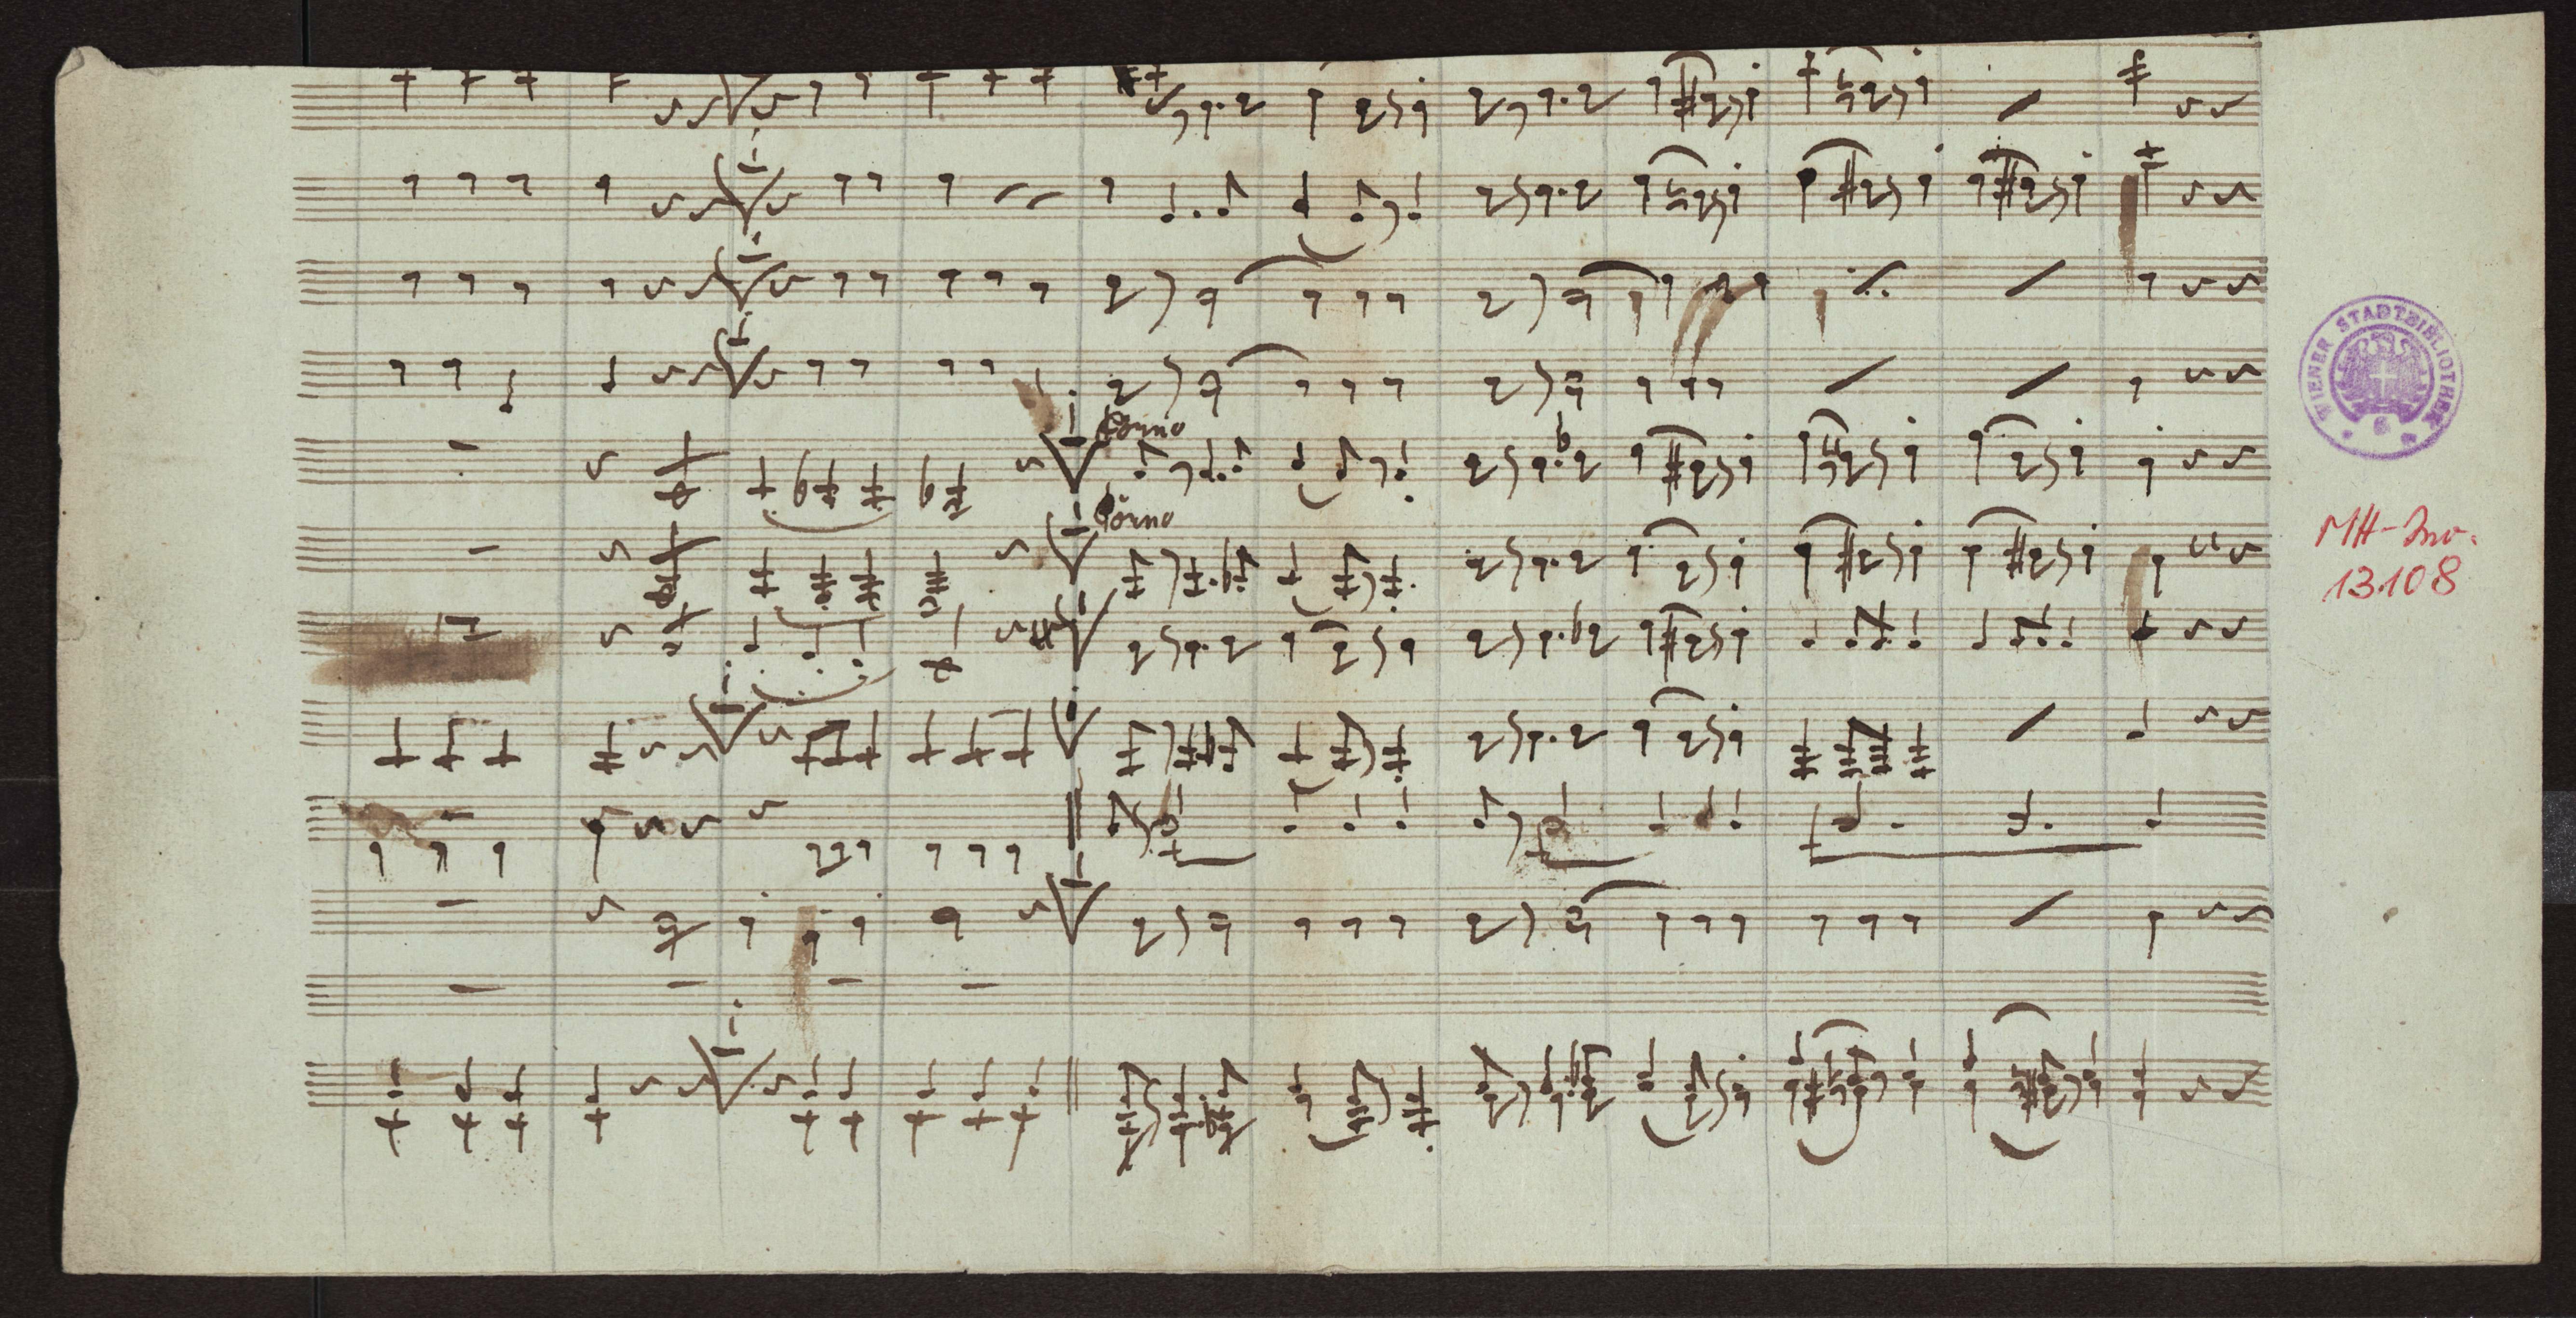 Corno
Corno
WIENER STADTBIBLIOTHEK
MH-Inv.
13.108